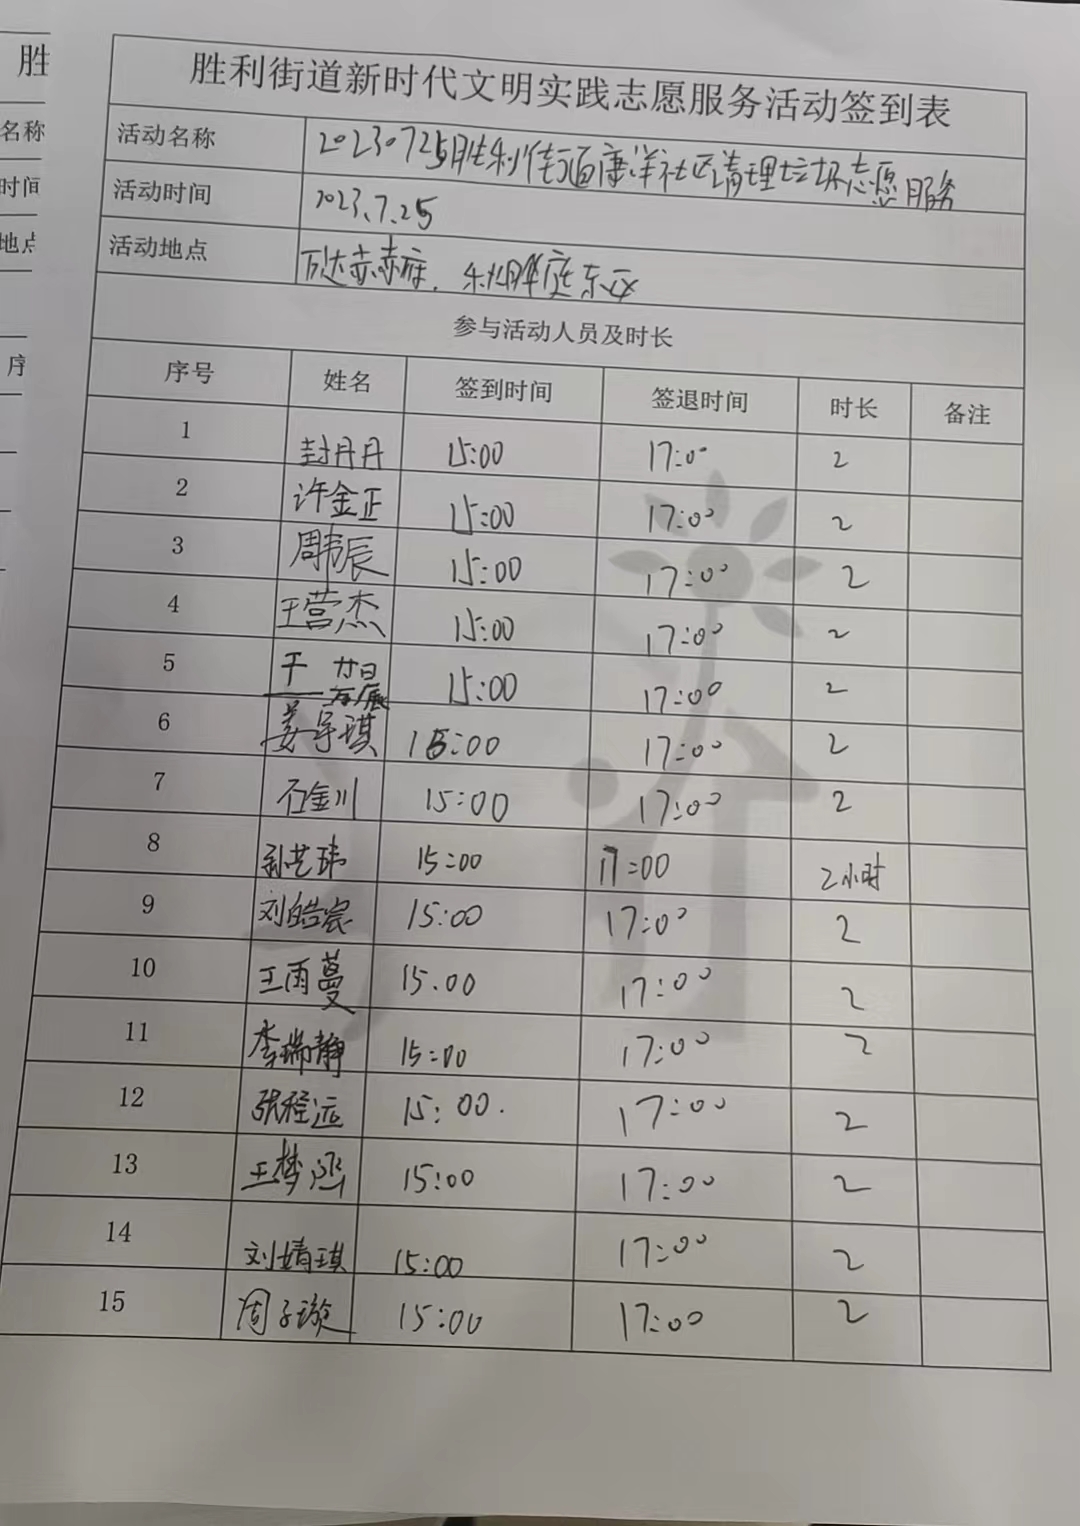 胜
名称
时间
地点
序
胜利街道新时代文明实践志愿服务活动签到表
活动名称 20230725胜利街道康洋社区清理垃圾志愿服务
活动时间 2023.7.25
活动地点 万达赤赤府. 东区
参与活动人员及时长
序号 姓名 签到时间 签退时间 时长 备注
1 封丹丹 15:00 17:00 2
2 许金正 15:00 17:00 2
3 周韦辰 15:00 17:00 2
4 王营杰 15:00 17:00 2
5 15:00 17:00 2
6 姜宇琪 15:00 17:00 2
7 石金川 15:00 17:00 2
8 孙艺玮 15:00 17:00 2小时
9 刘皓宸 15:00 17:00 2
10 王雨蔓 15.00 17:00 2
11 李瑞静 15:00 17:00 2
12 张程远 15:00. 17:00 2
13 王梦涵 15:00 17:00 2
14 刘婧琪 15:00 17:00 2
15 周子璇 15:00 17:00 2